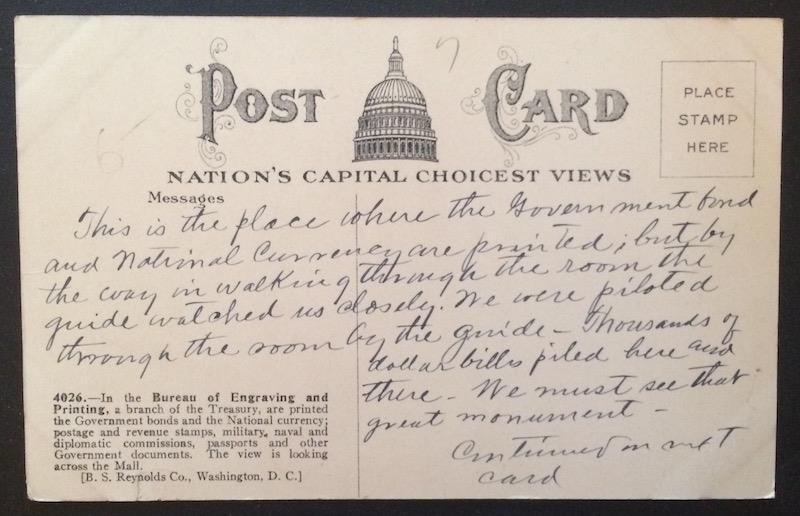 POST CARD
PLACE
STAMP
HERE
NATION'S CAPITAL CHOICEST VIEWS
Messages
This is the place where the Government bond
and National Currency are printed; but by
the way in walking through the room the
guide watched us closely. We were piloted
through the room by the guide – Thousands of
dollar bills piled here and
there – We must see that
great monument –
Continued on next
card
4026.—In the Bureau of Engraving and
Printing, a branch of the Treasury, are printed
the Government bonds and the National currency;
postage and revenue stamps, military, naval and
diplomatic commissions, passports and other
Government documents. The view is looking
across the Mall.
[B. S. Reynolds Co., Washington, D. C.]